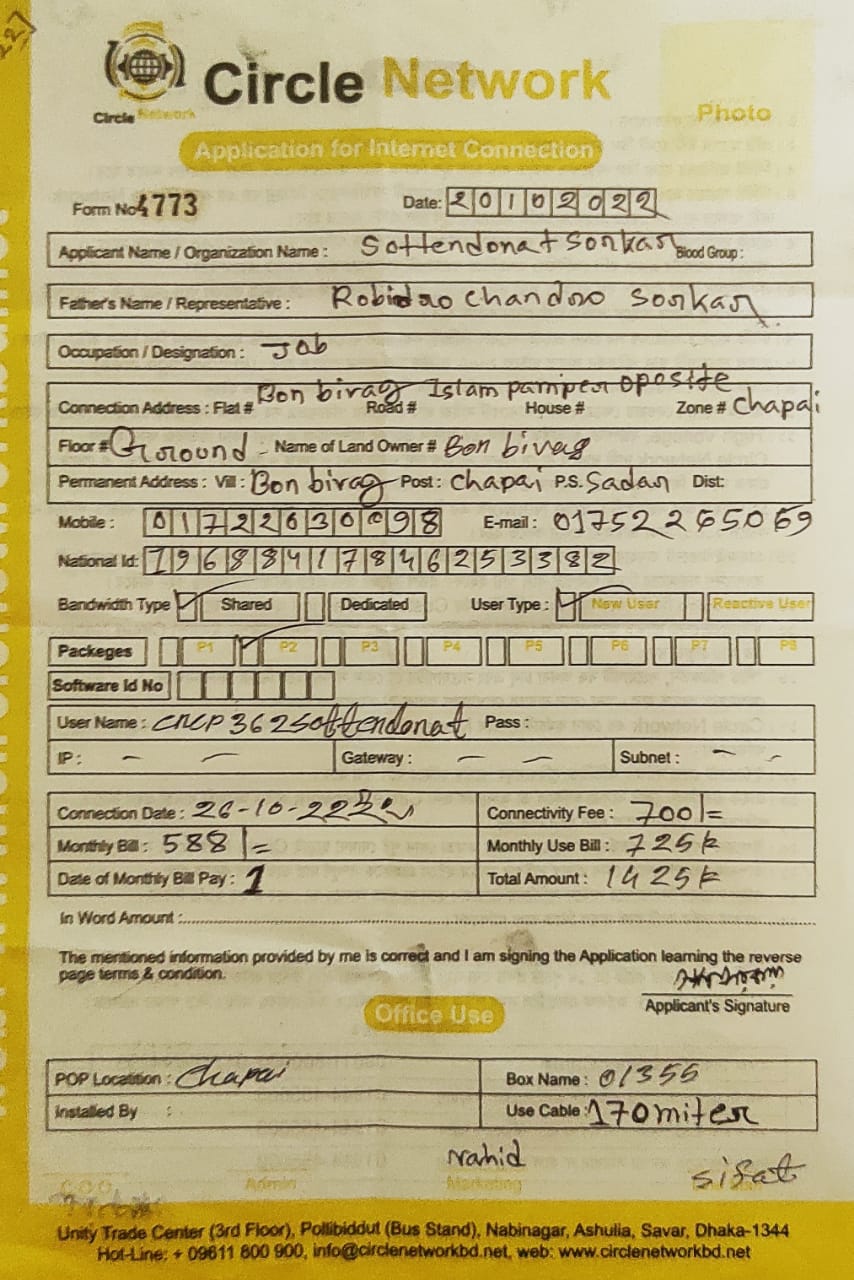 Circle Network
Circle Network
Photo
Application for Internet Connection
Form No 4773
Date: 20102022
Applicant Name / Organization Name : Sottendonat Sorkar Blood Group :
Father's Name / Representative : Robidro chandro Sorkar
Occupation / Designation : Job
Bon birag Islam pamper oposite
Connection Address : Flat # Road # House # Zone # Chapai
Floor # Ground - Name of Land Owner # Bon bivag
Permanent Address : Vill : Bon birag Post : Chapai P.S. Sadar Dist:
Mobile : 01722630098 E-mail : 01752265069
National Id: 19688417846253382
Bandwidth Type Shared Dedicated User Type : New User Reactive User
Packeges P1 P2 P3 P4 P5 P6 P7 P8
Software Id No
User Name : CNCP362Sottendonat Pass :
IP : Gateway : Subnet :
Connection Date : 26-10-22 Connectivity Fee : 700/=
Monthly Bill : 588/= Monthly Use Bill : 725
Date of Monthly Bill Pay : 1 Total Amount : 1425
In Word Amount :
The mentioned information provided by me is correct and I am signing the Application learning the reverse
page terms & condition.
Applicant's Signature
Office Use
POP Locatition : Chapai Box Name : 01355
Installed By : Use Cable : 170miter
Nahid sifat
COO Admin Marketing
Unity Trade Center (3rd Floor), Pollibiddut (Bus Stand), Nabinagar, Ashulia, Savar, Dhaka-1344
Hot-Line: + 09611 800 900, info@circlenetworkbd.net, web: www.circlenetworkbd.net